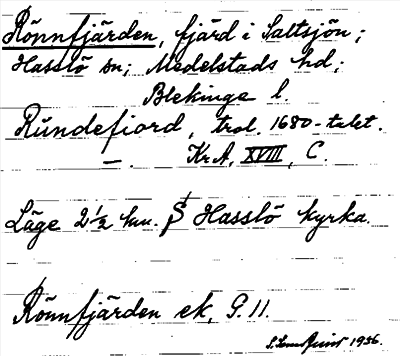 Rönnfjärden, fjärd i Saltsjön;
Hasslö sn; Medelstads hd;
Blekinge l.
Rŭndefiord, trol. 1680-talet.
—. KrA, XVIII, C.
Läge 2½ km. S Hasslö kyrka.
Rönnfjärden ek, G. 11.
1936.